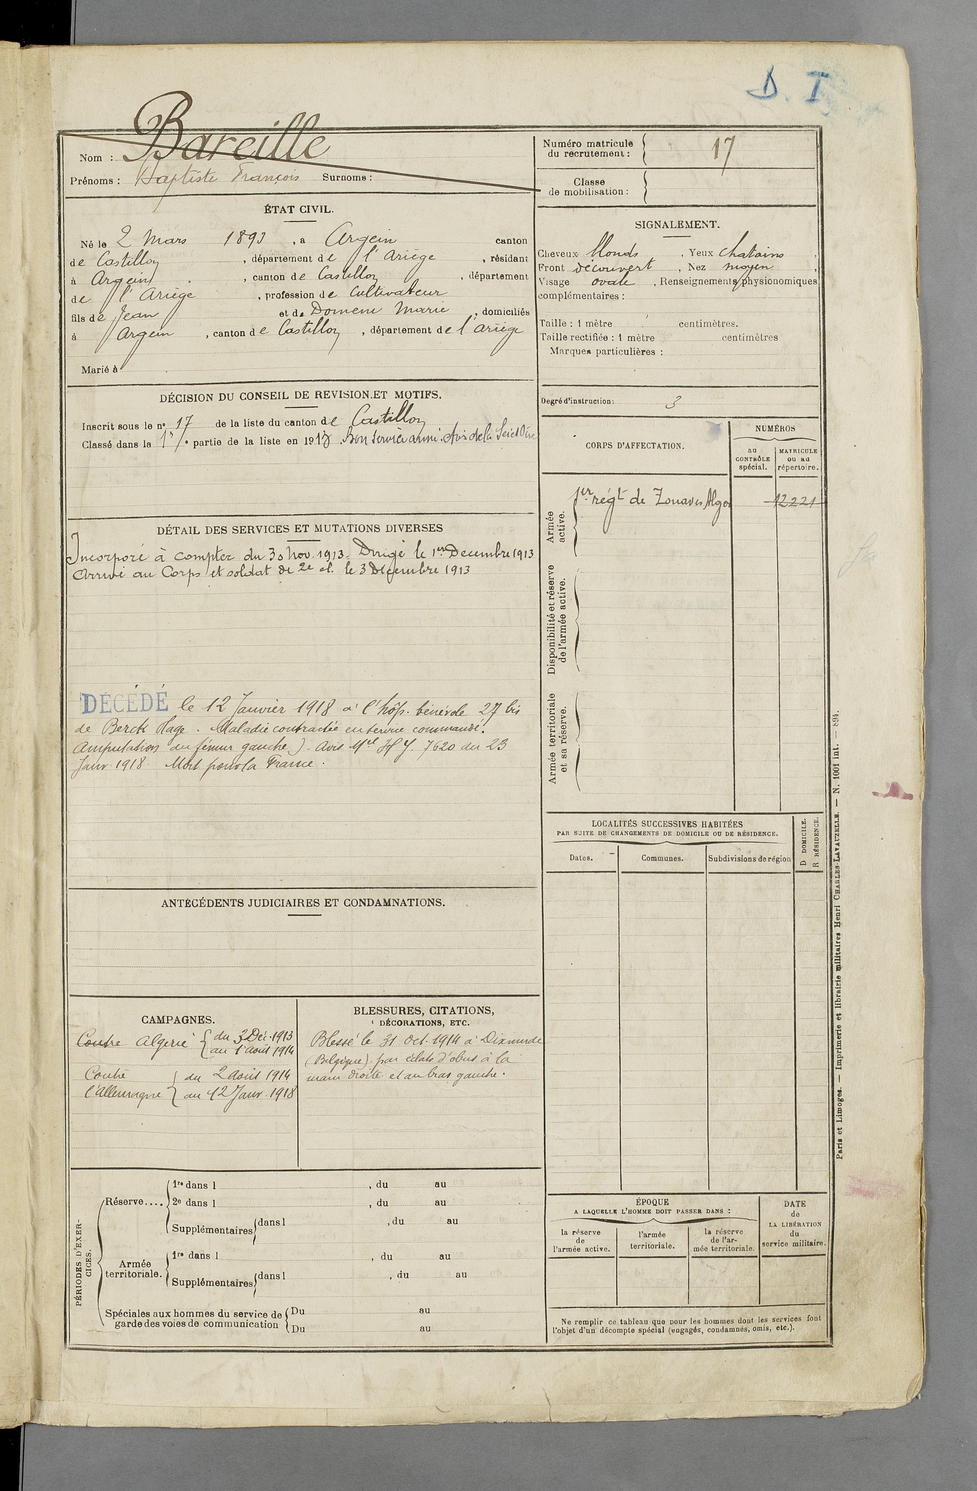 D. I
Nom : Bareille
Prénoms : Baptiste François Surnoms :
Numéro matricule
du recrutement : 17
Classe
de mobilisation :
ÉTAT CIVIL.
Né le 2 Mars 1893, à Argein canton
de Castillon, département de l'Ariège, résidant
à Argein, canton de Castillon, département
de l'Ariège, profession de cultivateur
fils de Jean et de Domenc Marie, domiciliés
à Argein, canton de Castillon, département de l'Ariège
Marié à
SIGNALEMENT.
Cheveux blonds, Yeux chatains,
Front découvert, Nez moyen,
Visage ovale, Renseignements physionomiques
complémentaires :
Taille : 1 mètre centimètres.
Taille rectifiée : 1 mètre centimètres
Marques particulières :
Degré d'instruction : 3
DÉCISION DU CONSEIL DE REVISION ET MOTIFS.
Inscrit sous le n° 17 de la liste du canton de Castillon
Classé dans la 1re partie de la liste en 1913. Bon service armé. Avis de la
DÉTAIL DES SERVICES ET MUTATIONS DIVERSES
Incorporé à compter du 30 Nov. 1913. Dirigé le 1er Décembre 1913
Arrivé au Corps et soldat de 2e cl. le 3 Décembre 1913
DÉCÉDÉ le 12 Janvier 1918 à l'hôp. bénévole 27 bis
de Berck Plage. Maladie contractée en service commandé.
Amputation du fémur gauche). Avis 7620 du 23
Janv 1918 Mort pour la France.
CORPS D'AFFECTATION.
NUMÉROS
au
CONTRÔLE
spécial.
MATRICULE
ou au
répertoire.
Armée
active.
1er régt de Zouaves Alger 12221
Disponibilité et réserve
de l'armée active.
Armée territoriale
et sa réserve.
LOCALITÉS SUCCESSIVES HABITÉES
PAR SUITE DE CHANGEMENTS DE DOMICILE OU DE RÉSIDENCE.
Dates. Communes. Subdivisions de région
D DOMICILE.
R RÉSIDENCE.
ANTÉCÉDENTS JUDICIAIRES ET CONDAMNATIONS.
CAMPAGNES.
Contre Algérie du 3 Déc. 1913
au 1 août 1914
Contre du 2 août 1914
l'Allemagne au 12 Janv. 1918
BLESSURES, CITATIONS,
DÉCORATIONS, ETC.
Blessé le 31 Oct. 1914 à Dixmude
(Belgique) par éclats d'obus à la
main droite et au bras gauche.
PÉRIODES D'EXER-
CICES.
Réserve....
1re dans l , du au
2e dans l , du au
Supplémentaires dans l , du au
Armée
territoriale.
1re dans l , du au
Supplémentaires dans l , du au
Spéciales aux hommes du service de
garde des voies de communication
Du au
Du au
ÉPOQUE
A LAQUELLE L'HOMME DOIT PASSER DANS :
la réserve
de
l'armée active.
l'armée
territoriale.
la réserve
de l'ar-
mée territoriale.
DATE
de
LA LIBÉRATION
du
service militaire.
Ne remplir ce tableau que pour les hommes dont les services font
l'objet d'un décompte spécial (engagés, condamnés, omis, etc.).
Paris et Limoges. — Imprimerie et librairie militaires Henri CHARLES-LAVAUZELLE. — N. 1001 int. — 894.